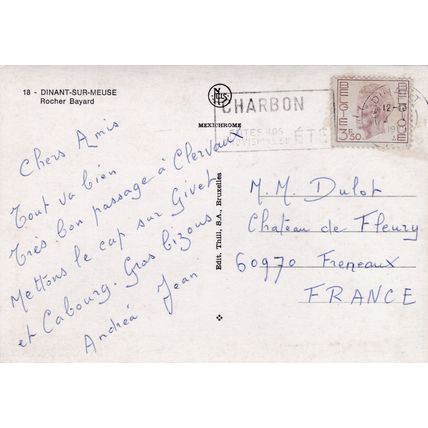 18 - DINANT-SUR-MEUSE
Rocher Bayard
MEXICHROME
CHARBON
ÉTÉ
3,50
Edit. Thill, S.A., Bruxelles
Chers Amis
Tout va bien
Très bon passage à Clervaux
Mettons le cap sur Givet
et Cabourg. Gros bizous
Andréa Jean
M.M. Dulot
Chateau de Fleury
60970 Freneaux
FRANCE